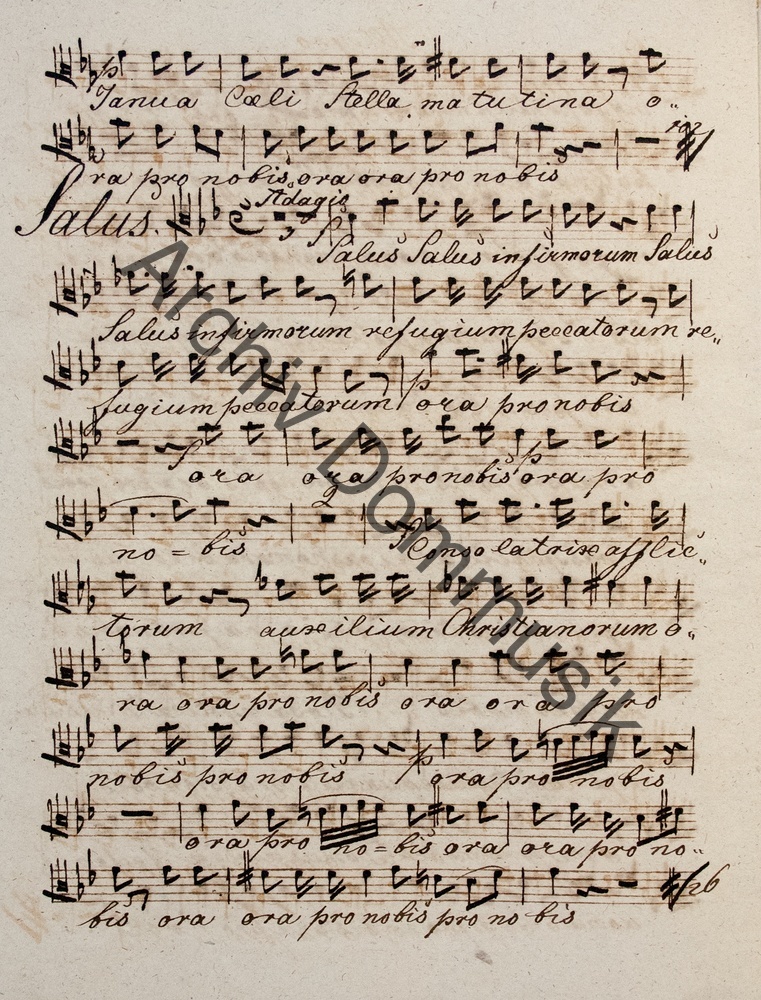 p
Janua Cœli Stella matutina o„
102
Ora pro nobis ora ora pro nobis
Salus. Adagio
3
Salus Salus infirmorum Salus
Salus infirmorum refugium peccatorum re„
p
fugium peccatorum ora pro nobis
f p
ora ora pro nobis ora pro
2
no = bis Consolatrix afflic„
torum auxilium Christianorum o„
ra ora pro nobis ora ora pro
p
nobis pro nobis ora pro nobis
ora pro no = bis ora ora pro no„
26
bis ora ora pro nobis pro no bis
Archiv Dommusik